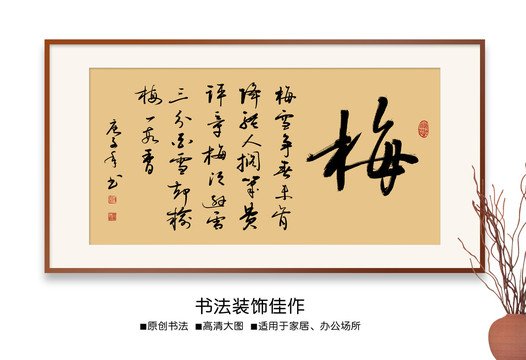 梅
梅雪争春未肯
降骚人搁笔费
评章梅须逊雪
三分白雪却输
梅一段香
庚子年书
书法装饰佳作
■原创书法 ■高清大图 ■适用于家居、办公场所